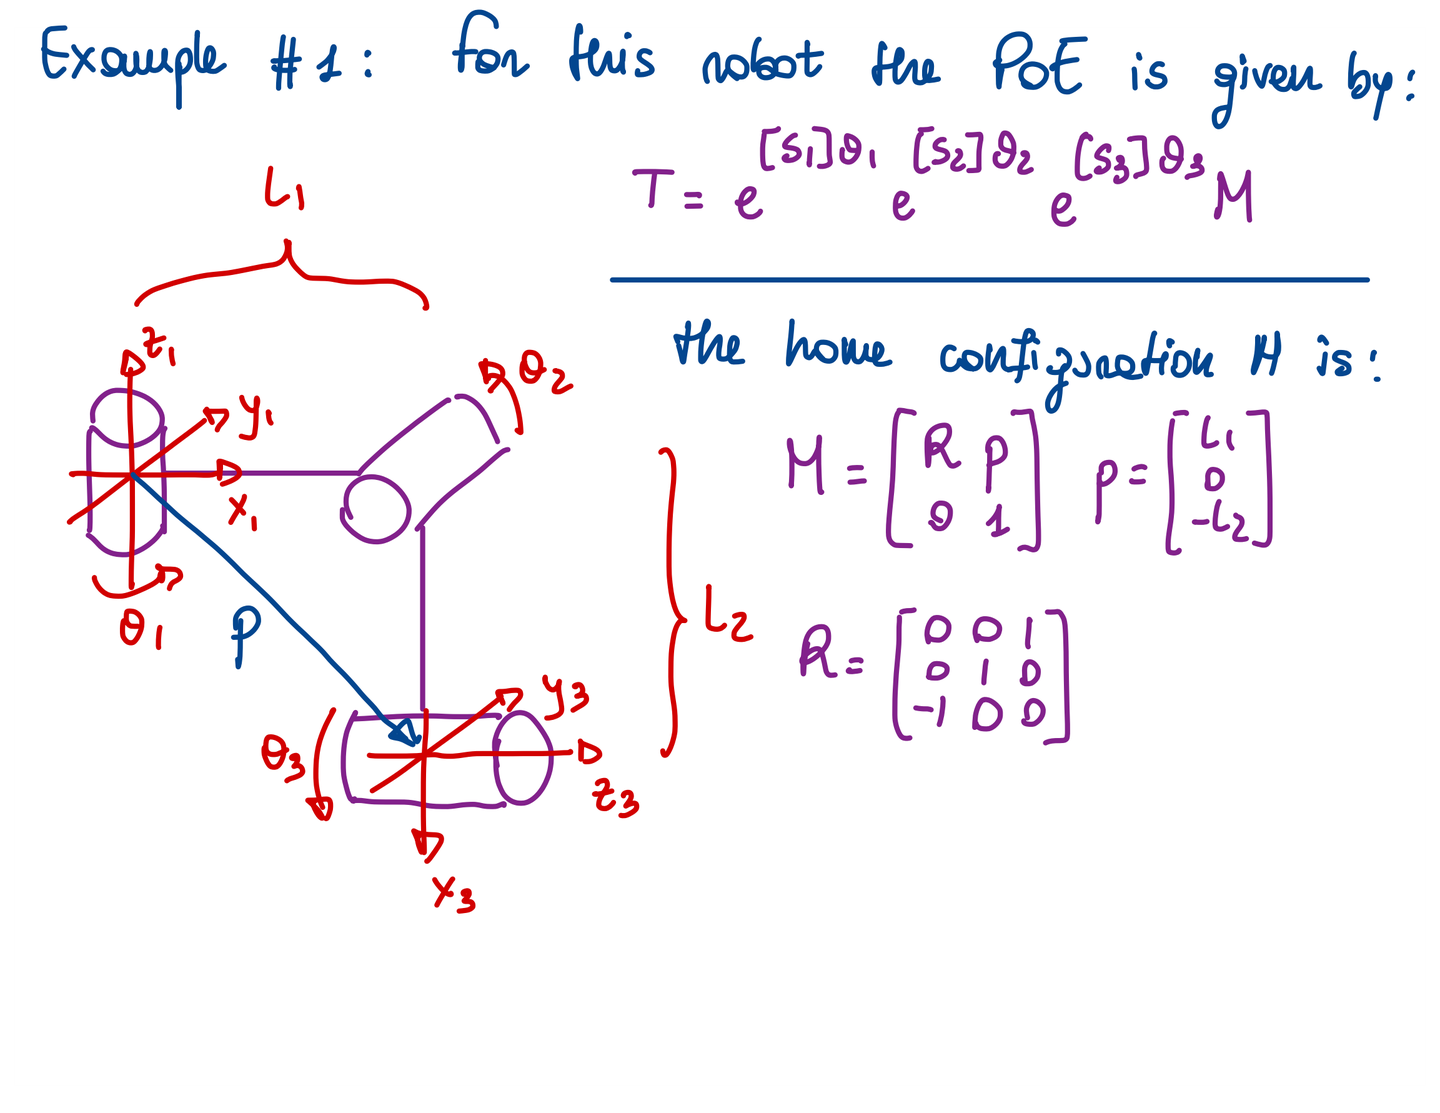 Example #1: for this robot the PoE is given by:
T = e^[S1]θ1 e^[S2]θ2 e^[S3]θ3 M
L1
the home configuration M is:
M = [R p
0 1]
p = [L1
0
-L2]
R = [0 0 1
0 1 0
-1 0 0]
z1
y1
x1
θ1
θ2
p
L2
θ3
y3
z3
x3